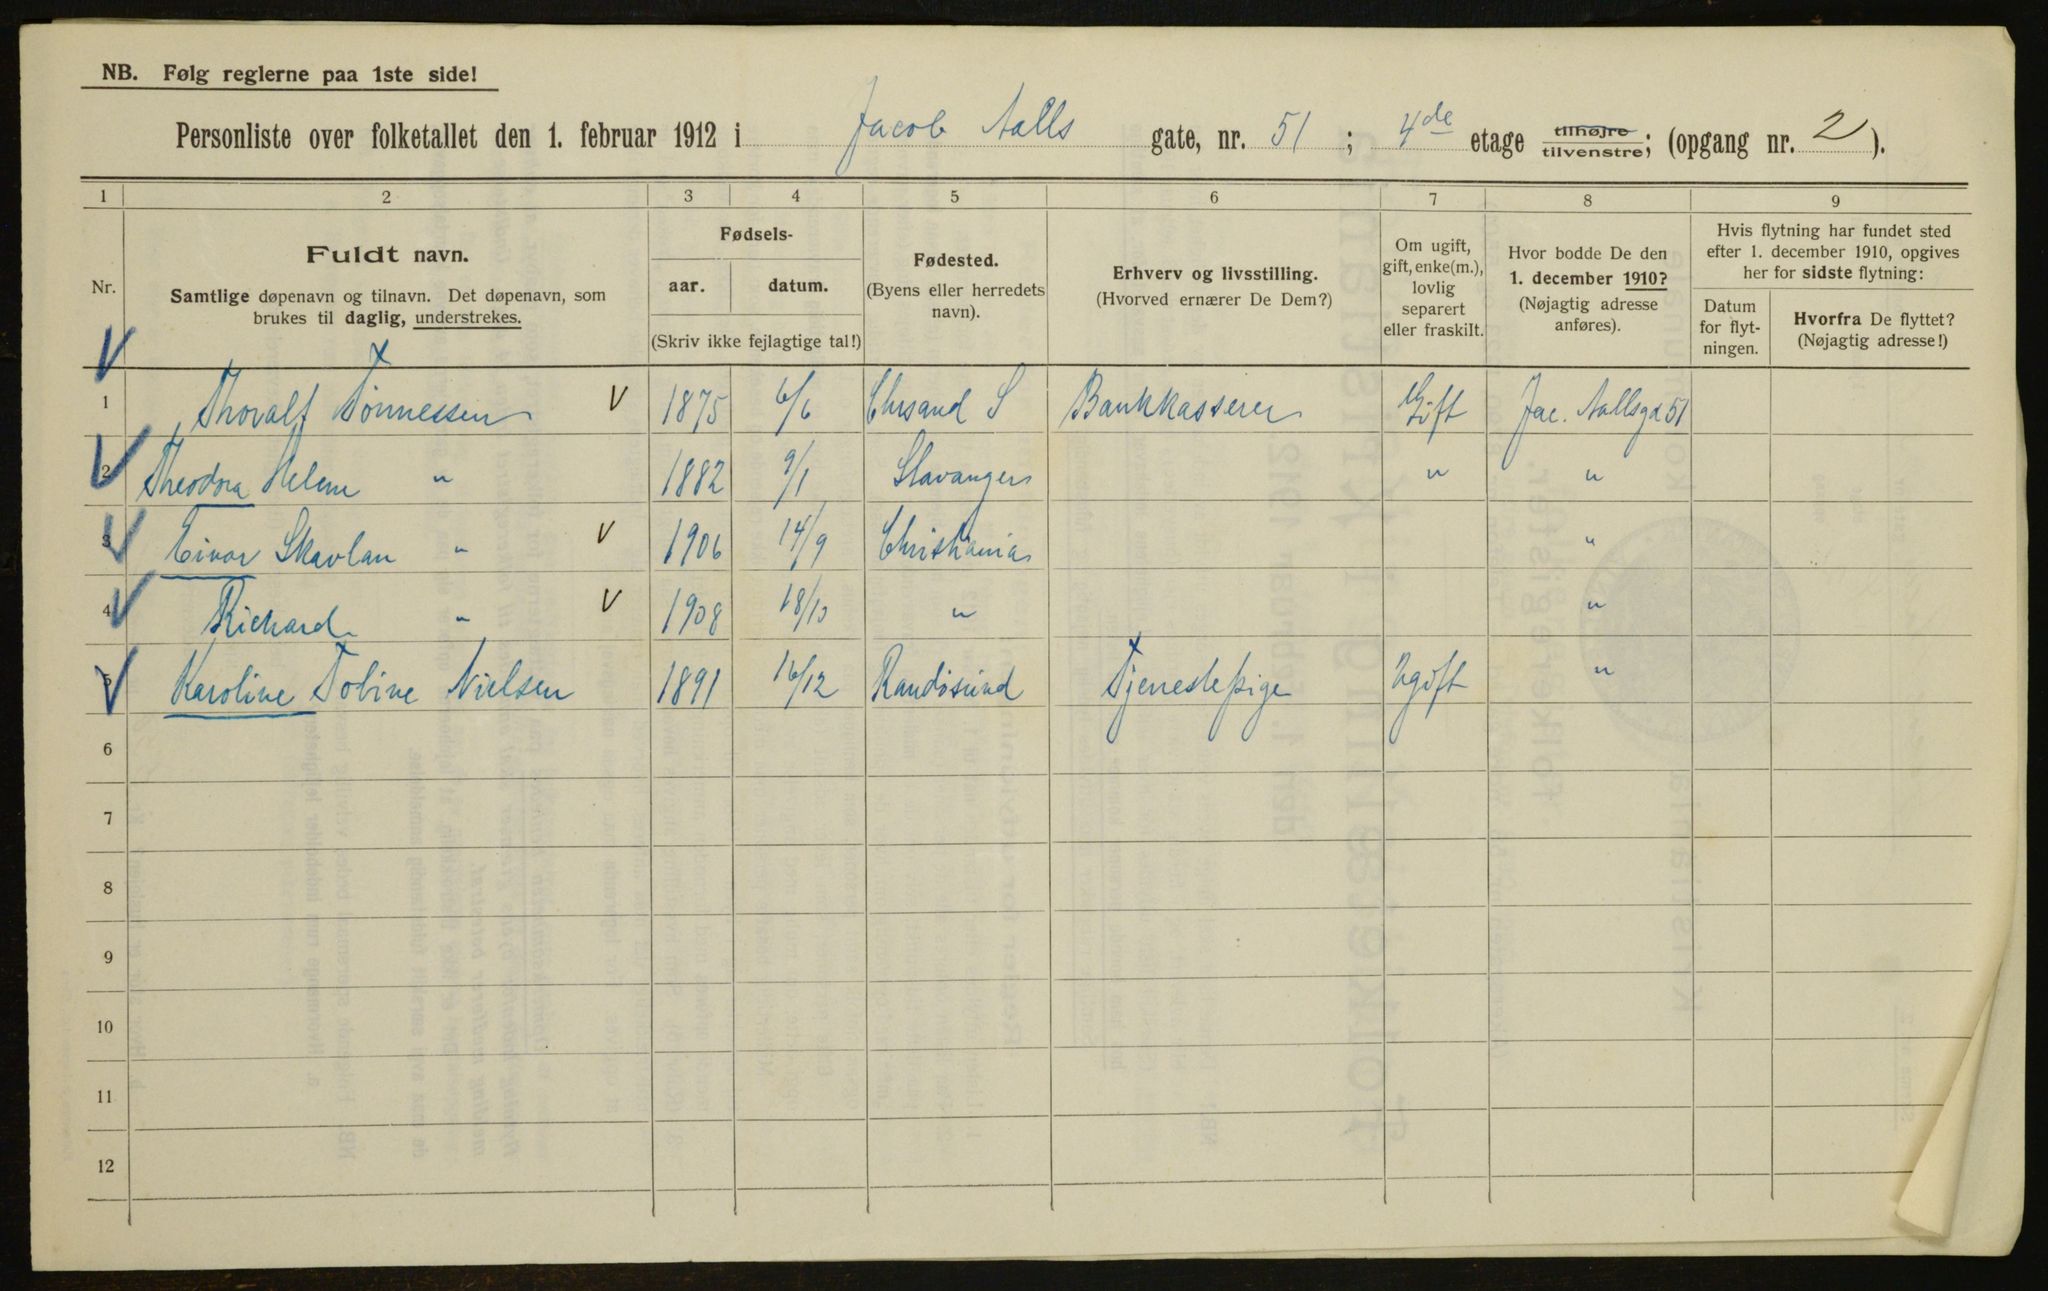 NB. Følg reglerne paa 1ste side!
Personliste over folketallet den 1. februar 1912 i Jacob Aalls gate, nr. 51 ; 4de etage tilhøjre tilvenstre ; (opgang nr. 2 ).
1 2 3 4 5 6 7 8 9
Nr.
Fuldt navn.
Samtlige døpenavn og tilnavn. Det døpenavn, som
brukes til daglig, understrekes.
Fødsels-
aar. datum.
(Skriv ikke fejlagtige tal!)
Fødested.
(Byens eller herredets
navn).
Erhverv og livsstilling.
(Hvorved ernærer De Dem?)
Om ugift,
gift, enke(m.),
lovlig
separert
eller fraskilt.
Hvor bodde De den
1. december 1910?
(Nøjagtig adresse
anføres).
Hvis flytning har fundet sted
efter 1. december 1910, opgives
her for sidste flytning:
Datum
for flyt-
ningen.
Hvorfra De flyttet?
(Nøjagtig adresse!)
1 Thoralf Tønnessen V 1875 6/6 Chrsand S Bankkasserer Gift Jac. Aallsga 51
2 Theodora Helene " 1882 9/1 Stavanger " "
3 Eivor Skavlan " V 1906 14/9 Christiania "
4 Richard " V 1908 18/10 " "
5 Karoline Tobine Nielsen 1891 16/12 Randøsund Tjenestepige Ugift "
6
7
8
9
10
11
12